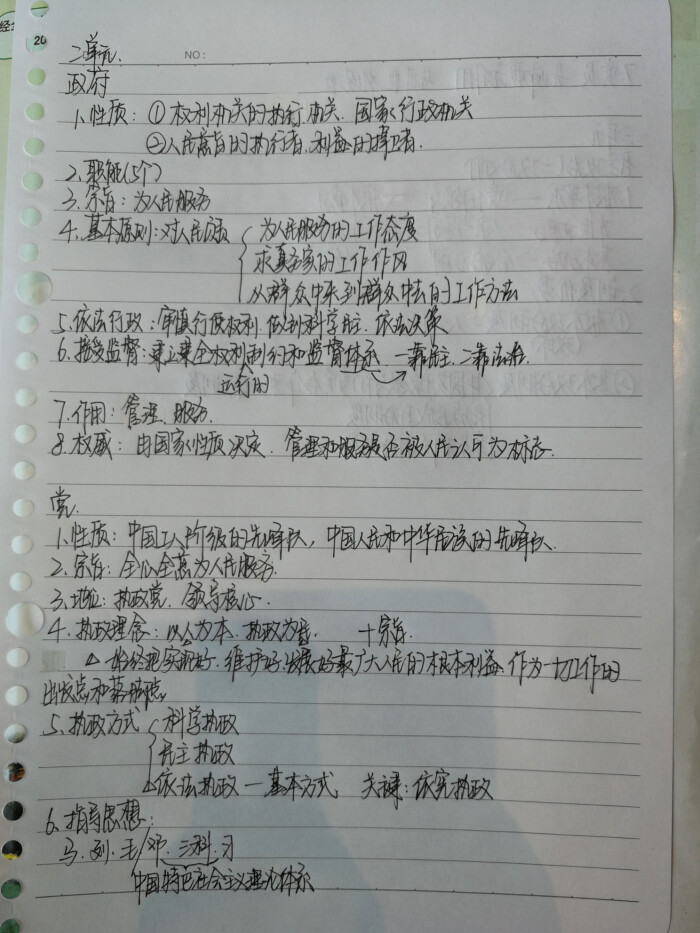 20
二单元.
NO:
政府
1.性质：①权利机关的执行机关. 国家行政机关
②人民意旨的执行者.利益的捍卫者.
2.职能(5个)
3.宗旨：为人民服务
4.基本原则：对人民负责
为人民服务的工作态度
求真务实的工作作风
从群众中来到群众中去的工作方法
5.依法行政：审慎行使权利.做到科学民主.依法决策
6.接受监督：建立健全权利制约和监督体系 一靠民主.二靠法治.
运行的
7.作用：管理.服务.
8.权威：由国家性质决定. 管理和服务是否被人民认可为标志.
党.
1.性质：中国工人阶级的先锋队，中国人民和中华民族的先锋队.
2.宗旨：全心全意为人民服务.
3.地位：执政党. 领导核心.
4.执政理念：以人为本.执政为民. 十宗旨.
△ 始终把实现好.维护好.发展好最广大人民的根本利益.作为一切工作的
出发点和落脚点.
5.执政方式
科学执政
民主执政
△依法执政一基本方式 关键：依宪执政
6.指导思想：
马.列.毛/邓.三.科.习
中国特色社会主义理论体系